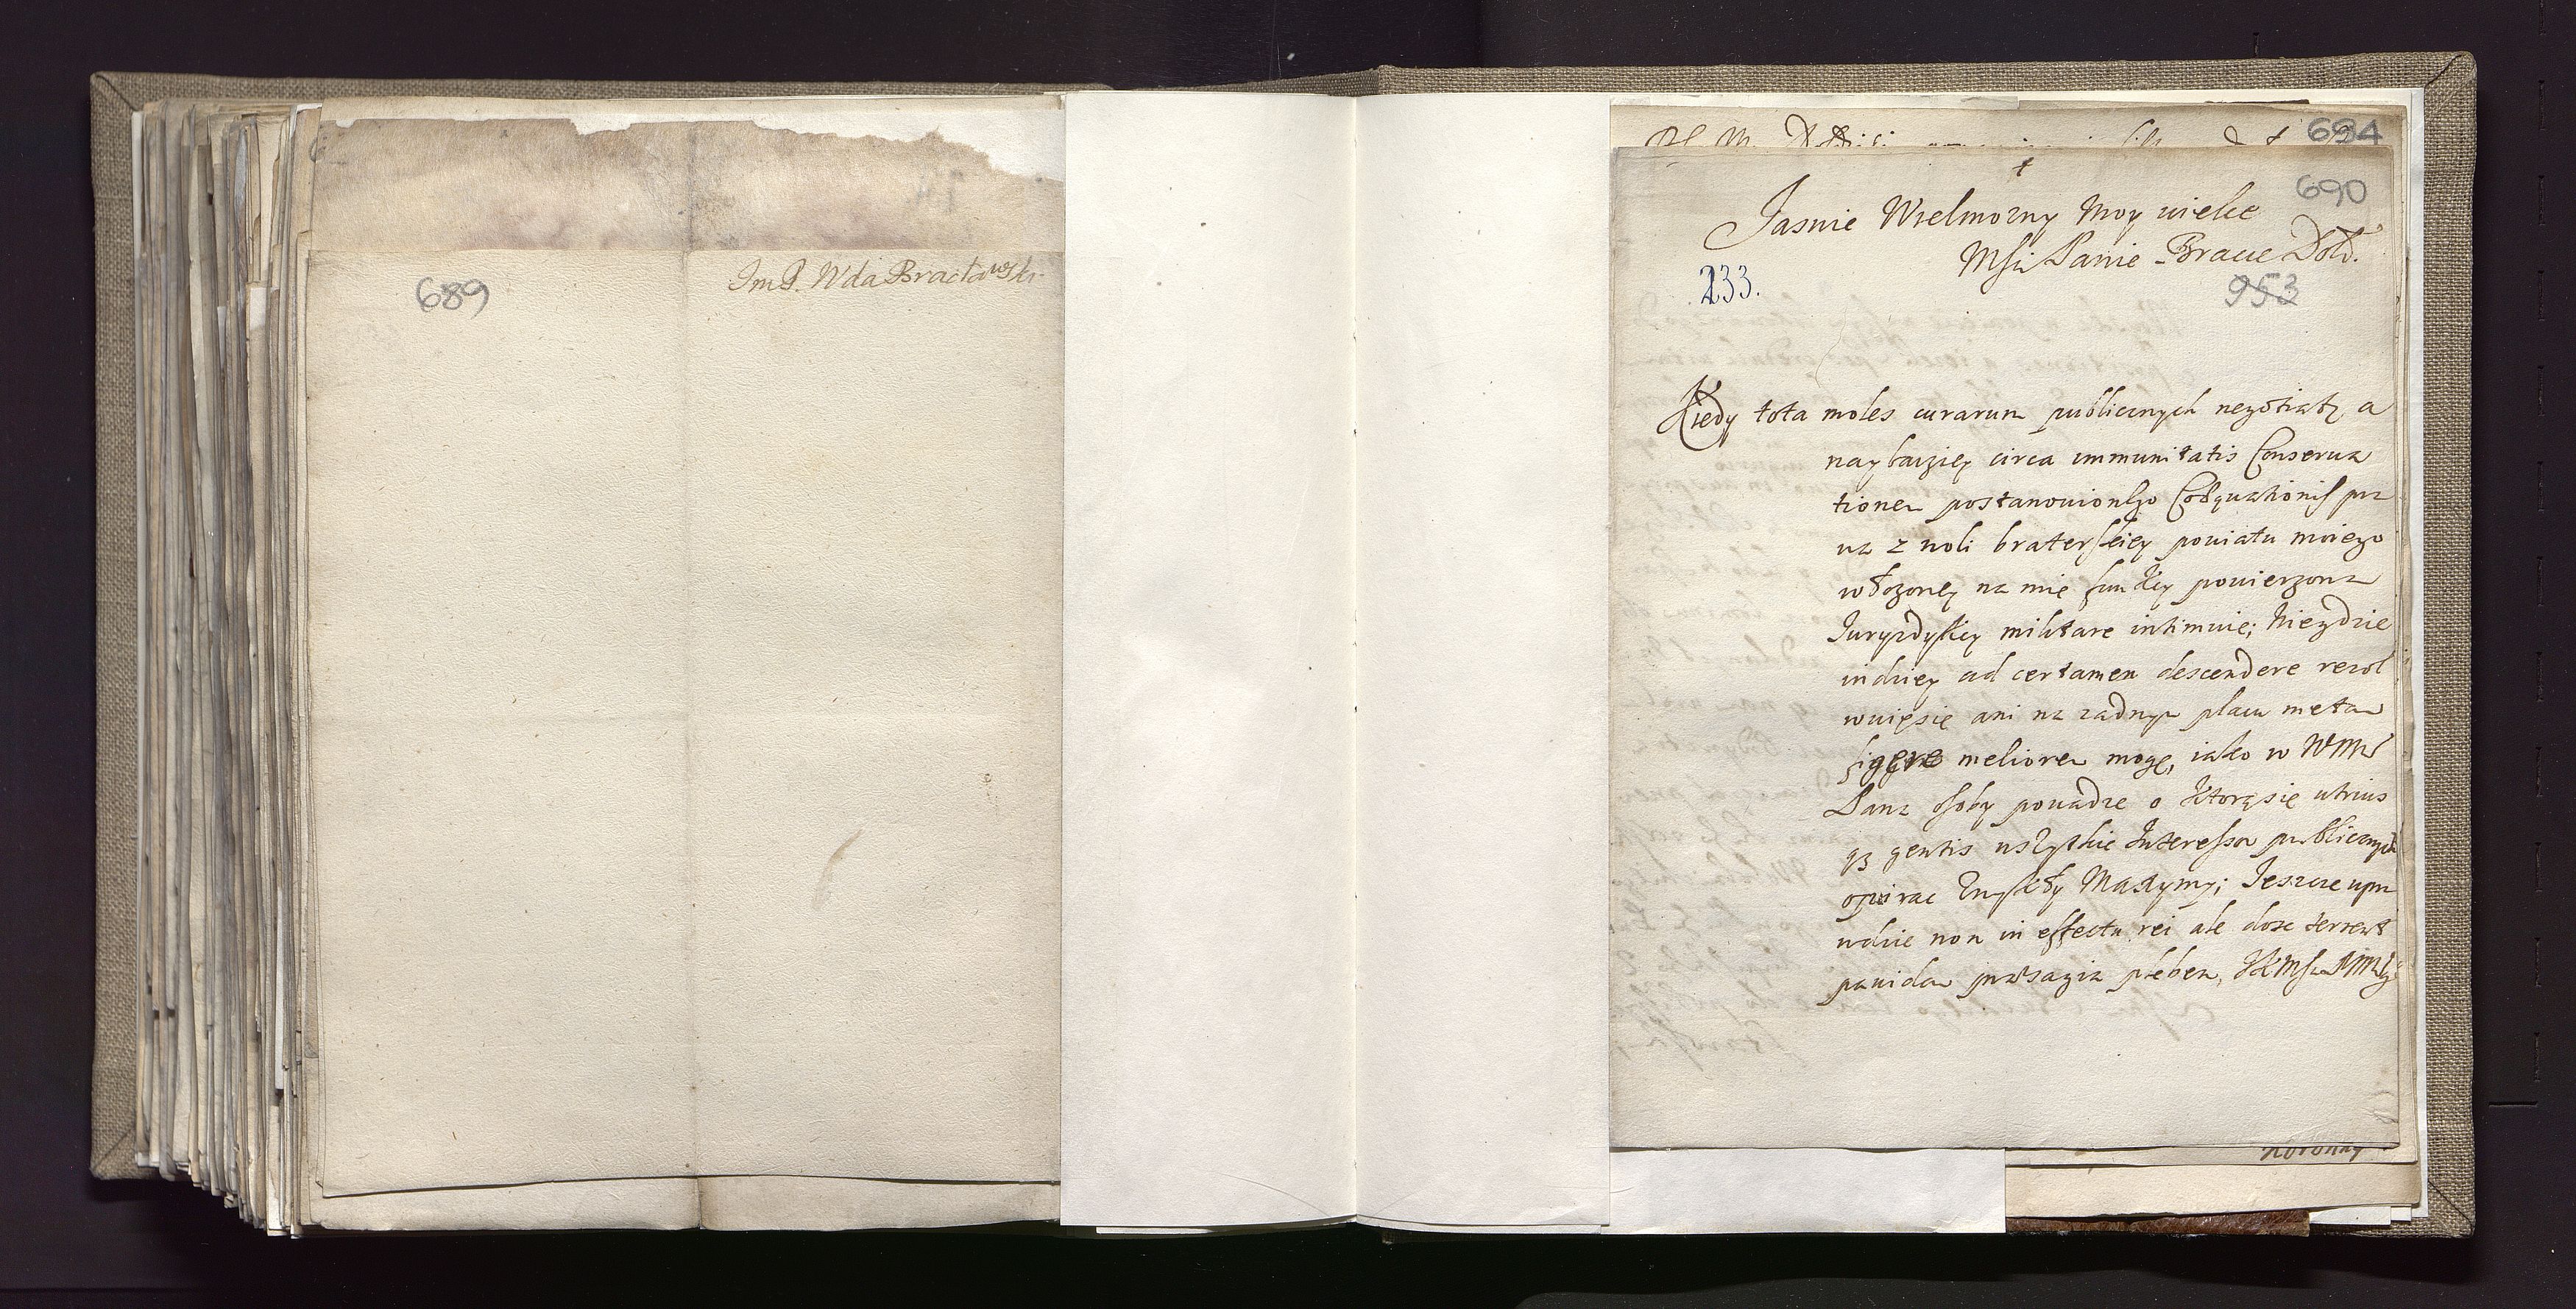 689
Im P. Wda Bracławski
694
†
690
Jasnie Wielmozny Moy wielce
Msci Panie Bracie Dob.
233.
953
Kiedy tota moles curarum publicznych negotiatų a
naybarziey circa immunitatis Conserua
tionem postanowionego Coæquationis pra
wa z woli braterskiey powiatu moiego
włozoney na mię funkcy powierzona
Juryzdykcy militare intimuie; Niegdzie
indziey ad certamen descendere rezol
wuięsię ani na zadnym placu metam
figere meliorem mogę, iako w WMM
Pana osoby powadze o ktorąsię utrius
qz gentis wszytkie Interessa publicznych
opierac zwykły Maxymy; Jeszcze upra
wdzie non in effectu rei ale dosc terrent
pauidam præsagia plebem,
Koronny